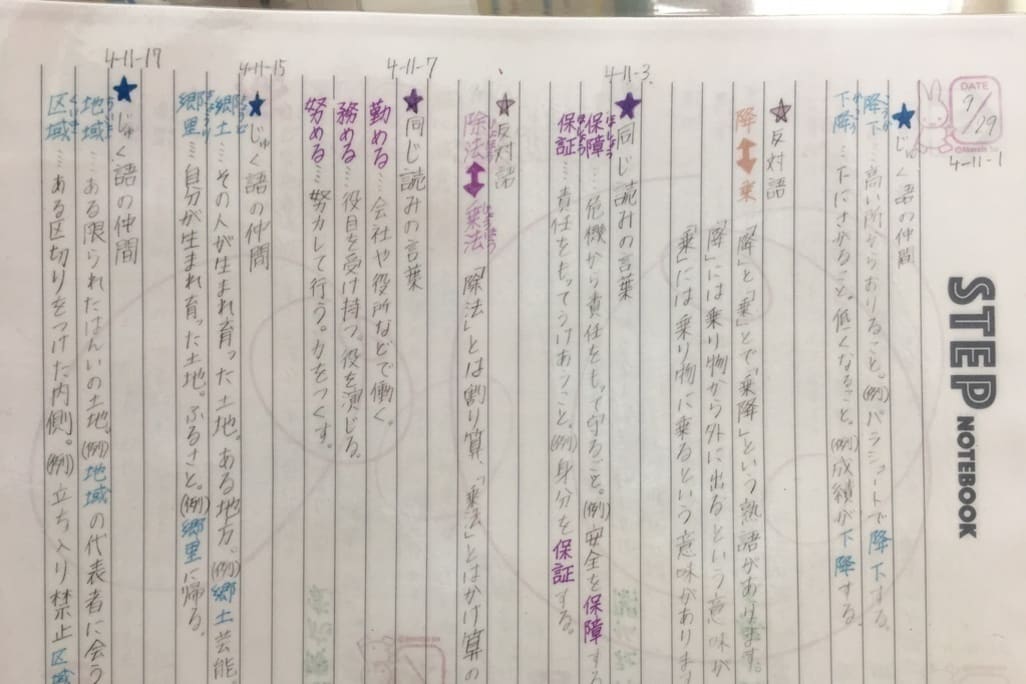 STEP NOTEBOOK
DATE
9/29
4-11-1
★じゅく語の仲間
降下…高い所からおりること。(例)パラシュートで降下する。
下降…下にさがること。低くなること。(例)成績が下降する
★反対語
降↔乗 「降」と「乗」とで「乗降」という熟語があります。
「降」には乗り物から外に出るという意味が
「乗」には乗り物に乗るという意味がありま
4-11-3
★同じ読みの言葉
保障…危機から責任をもって守ること。(例)安全を保障する
保証…責任をもってうけあうこと。(例)身分を保証する。
★反対語
除法↔乗法 「除法」とは割り算、「乗法」とはかけ算の
4-11-7
★同じ読みの言葉
勤める…会社や役所などで働く。
務める…役目を受け持つ。役を演じる。
努める…努力して行う。力をつくす。
4-11-15
★じゅく語の仲間
郷土…その人が生まれ育った土地。ある地方。(例)郷土芸能
郷里…自分が生まれ育った土地。ふるさと。(例)郷里に帰る。
4-11-17
★じゅく語の仲間
地域…ある限られたはんいの土地。(例)地域の代表者に会う
区域…ある区切りをつけた内側。(例)立ち入り禁止区域